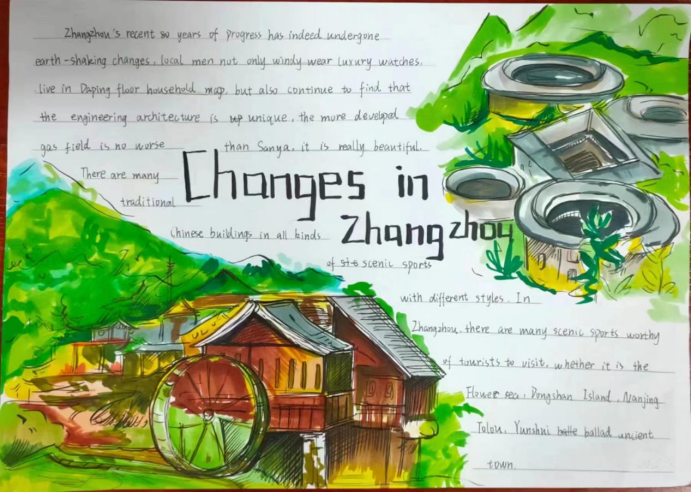 Zhangzhou's recent 30 years of progress has indeed undergone
earth-shaking changes, local men not only windy wear luxury watches,
live in Daping floor household map, but also continue to find that
the engineering architecture is unique, the more developed
gas field is no worse than Sanya, it is really beautiful.
There are many
traditional
Changes in
Zhangzhou
Chinese buildings in all kinds
of scenic sports
with different styles. In
Zhangzhou, there are many scenic sports worthy
of tourists to visit, whether it is the
Flower sea, Dongshan Island, Nanjing
Tolou, Yunshui ballad ancient
town.